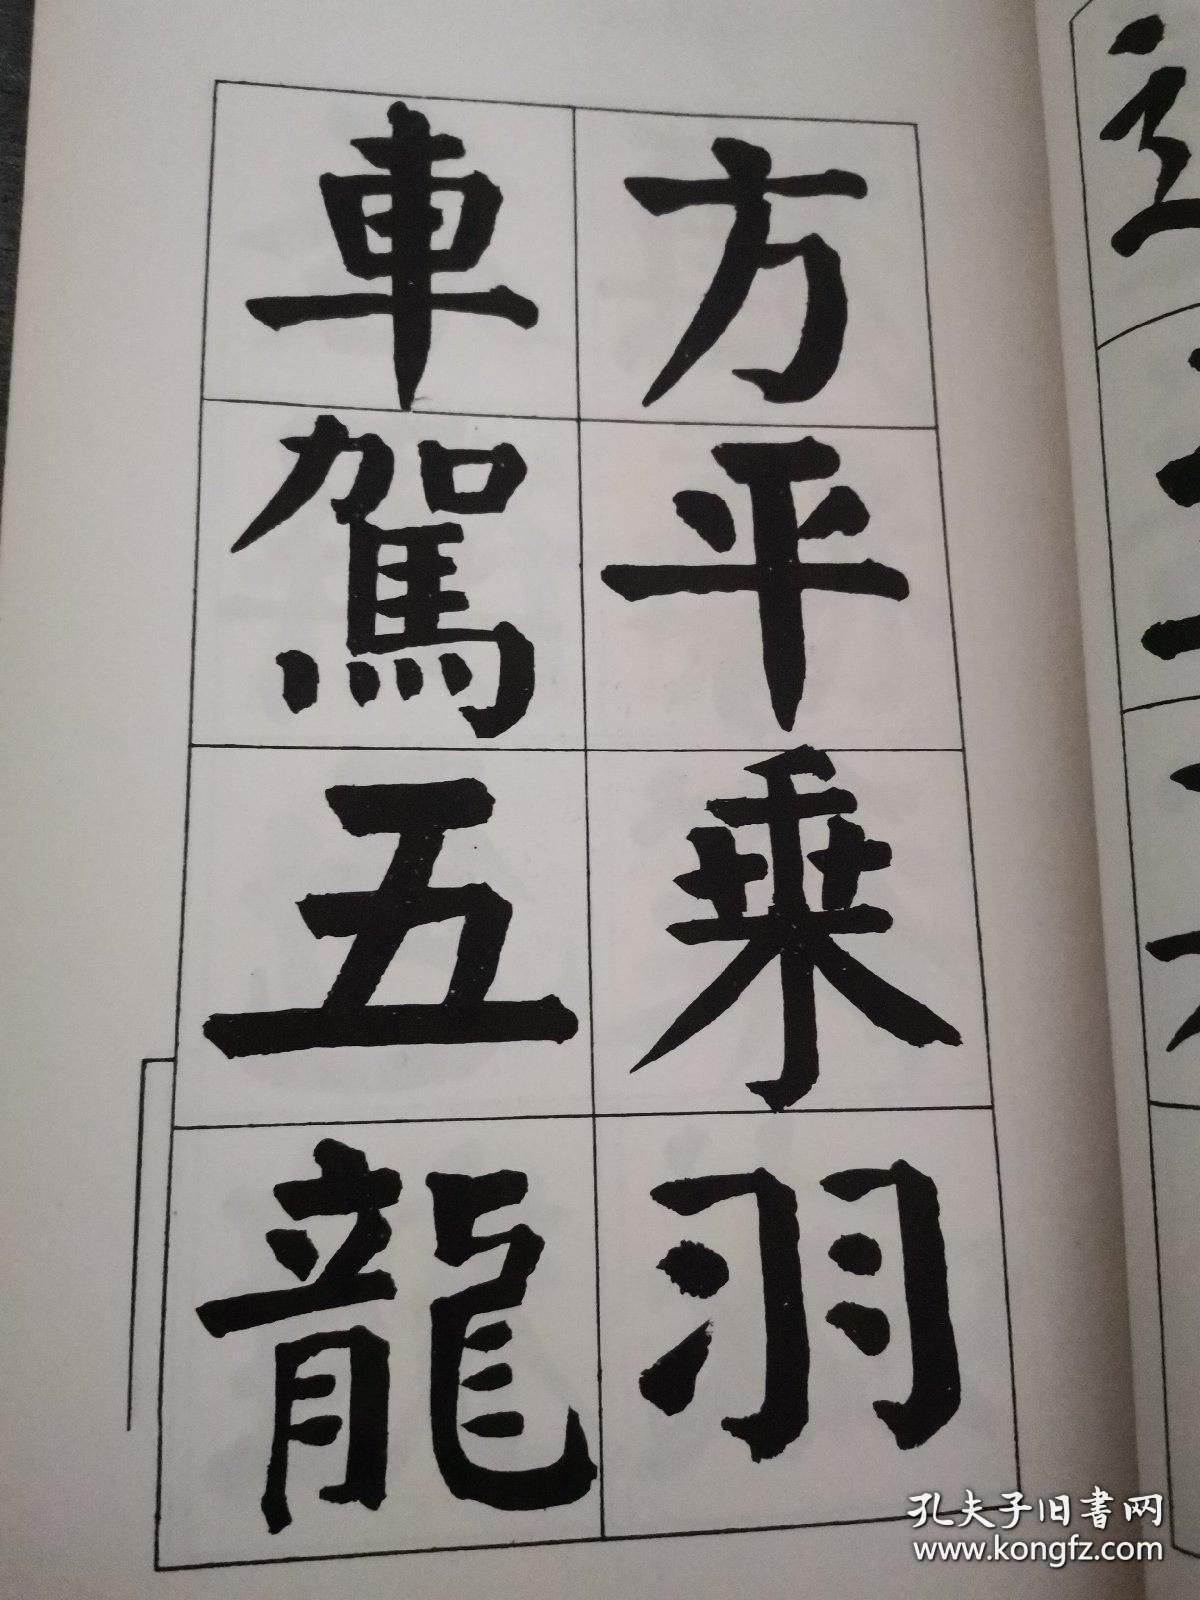 方平乗羽
車駕五龍
孔夫子旧書网
www.kongfz.com